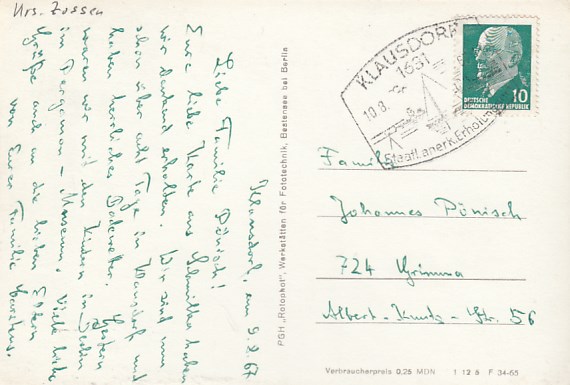 Krs. Zossen
Klausdorf, am 9.8.67
Liebe Familie Pönisch!
Eure liebe Karte aus Schmilka haben
wir dankend erhalten. Wir sind nun
schon über acht Tage in Klausdorf und
haben herrliches Badewetter. Gestern
waren wir mit den Kindern in Berlin
im Pergamon - Museum. Viele liebe
Grüße auch an die lieben Eltern
von Eurer Familie
PGH „Rotophot“, Werkstätten für Fototechnik, Bestensee bei Berlin
KLAUSDORF
1631
10.8.
Staatl. anerk. Erholung
DEUTSCHE
DEMOKRATISCHE REPUBLIK 10
Familie
Johannes Pönisch
724 Grimma
Albert-Kuntz-Str. 56
Verbraucherpreis 0,25 MDN 1 12 6 F 34-65